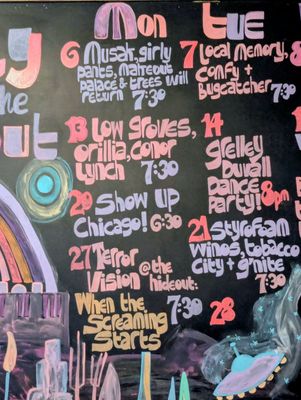 Mon
6 Musak, girly
pants, malteout
palace & trees will
return 7:30
13 Low Groves,
Orillia, Conor
Lynch 7:30
20 Show Up
Chicago! 6:30
27 Terror
Vision @the
hideout:
When the
Screaming
Starts
7:30
Tue
7 Local Memory,
Comfy +
Bugcatcher 7:30
14
Grelley
Duvall
Dance
Party! 8pm
21 Styrofoam
Winos, Tobacco
City + g'nite
7:30
28